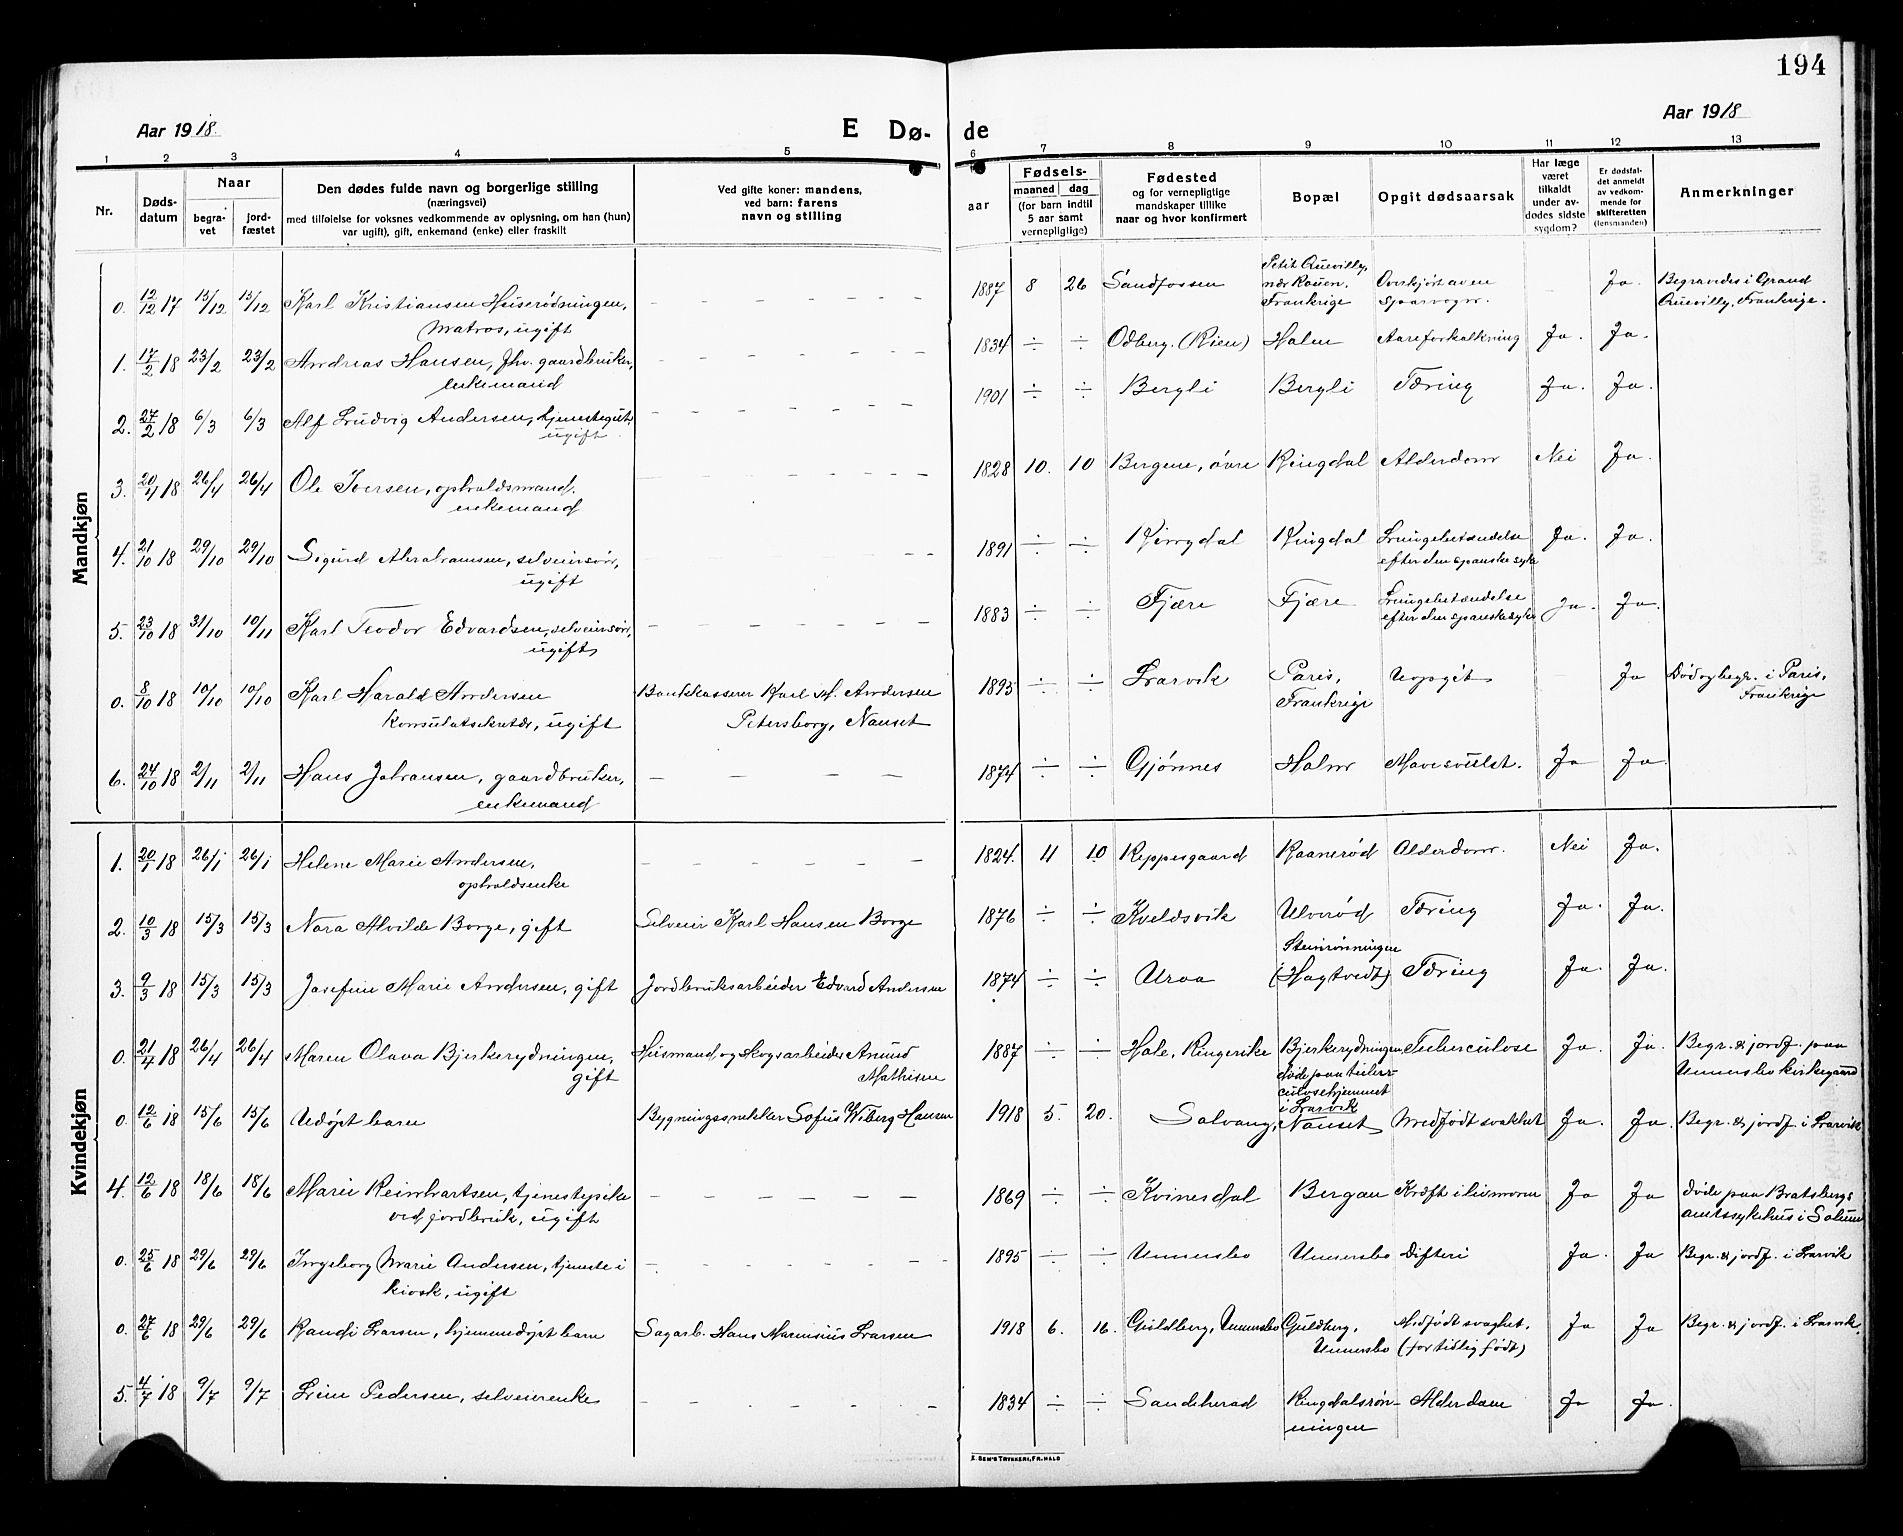 194
Aar 1918.
E Dø-
de
Aar 1918
1 2 3 4 5 6 7 8 9 10 11 12 13
Nr.
Døds-
datum
Naar
begra-
vet
jord-
fæstet
Den dødes fulde navn og borgerlige stilling
(næringsvei)
med tilføielse for voksnes vedkommende av oplysning, om han (hun)
var ugift), gift, enkemand (enke) eller fraskilt
Ved gifte koner: mandens,
ved barn: farens
navn og stilling
Fødsels-
aar
maaned dag
(for barn indtil
5 aar samt
vernepligtige)
Fødested
og for vernepligtige
mandskaper tillike
naar og hvor konfirmert
Bopæl
Opgit dødsaarsak
Har læge
været
tilkaldt
under av-
dødes sidste
sygdom?
Er dødsfal-
det anmeldt
av vedkom-
mende for
skifteretten
(lensmanden)
Anmerkninger
Mandkjøn
0. 12/12 17 15/12 15/12 Karl Kristiansen Huserødningen,
matros, ugift
1887 8 26 Sandfossen
Petit Quevilly,
nær Rouen,
Frankrige
Overkjørt av en
sporvogn.
Ja.
Begravedes i Grand
Quevilly, Frankrige.
1. 17/2 18 23/2 23/2 Andreas Hansen, fhv. gaardbruker,
enkemand
1834 ÷ ÷ Odberg. (Kien) Halen Aareforkalkning Ja. Ja.
2. 27/2 18 6/3 6/3 Alf Ludvig Andersen, tjenestegut,
ugift
1901 ÷ ÷ Bergli Bergli Tæring Ja. Ja.
3. 20/4 18 26/4 26/4 Ole Iversen, opholdsmand.
enkemand
1828 10. 10 Bergene, øvre Ringdal Alderdom Nei Ja.
4. 21/10 18 29/10 29/10 Sigurd Abrahamsen, selveiersøn,
ugift
1891 ÷ ÷ Ringdal Ringdal Lungebetændelse
efter den spanske syke
Ja. Ja.
5. 23/10 18 31/10 10/11 Karl Teodor Edvardsen, selveiersøn,
ugift
1883 ÷ ÷ Fjære Fjære Lungebetændelse
efter den spanske syke
Ja. Ja.
0. 8/10 18 10/10 10/10 Karl Harald Andersen
konsulatsekretær, ugift
Bankkasserer Karl H. Andersen
Petersborg, Nanset
1895 ÷ ÷ Larvik Paris,
Frankrige
Uopgit
Ja
Død og begr. i Paris,
Frankrige
6. 24/10 18 2/11 2/11 Hans Johansen, gaardbruker,
enkemand
1874 ÷ ÷ Gjønnes Halm Mavesvulst. Ja Ja.
Kvindekjøn
1. 20/1 18 26/1 26/1 Helene Marie Andersen,
opholdsenke
1824. 11 10 Keppesgaard Raanerød Alderdom. Nei Ja.
2. 10/3 18 15/3 15/3 Nora Alvilde Borge, gift Selveier Karl Hansen Borge
1876 ÷ ÷ Kveldsvik Ulverød Tæring Ja. Ja.
3. 9/3 18 15/3 15/3 Josefine Marie Andersen, gift Jordbruksarbeider Edvard Andersen
1874 ÷ ÷ Uraa Steinrønningen
(Hagtvedt) Tæring Ja. Ja.
0. 21/4 18 26/4 26/4 Maren Olava Bjerkerydningen,
gift
Husmand og skogsarbeider Anund
Mathisen
1887 ÷ ÷ Hole, Ringerike Bjerkerydningen
døde paa tuber-
culosehjemmet
i Larvik
Tuberculose Ja. Ja.
Begr. & jordf. paa
Unnersbo kirkegaard
0. 12/6 18 15/6 15/6 Udøpt barn Bygningssnekker Sofus Wiberg Hansen
1918 5. 20. Solvang, Nanset Medfødt svakhet Ja. Ja. Begr. & jordf. i Larvik
4. 12/6 18 18/6 18/6 Marie Reinhartsen, tjenestepike
ved jordbruk, ugift
1869 ÷ ÷ Kvinesdal Bergan Kræft i livmoren Ja Ja døde paa Bratsbergs
amtssykehus i Solum
0. 25/6 18 29/6 29/6 Ingeborg Marie Andersen, tjeneste i
kiosk, ugift
1895 ÷ ÷ Unnersbo Unnersbo Difteri Ja. Ja Begr. & jordf. i Larvik
0. 27/6 18 29/6 29/6 Randi Larsen, hjemmedøpt barn Sagarb. Hans Marensius Larsen
1918 6. 16. Guldberg, Unnersbo Guldberg,
Unnersbo
Medfødt svaghet.
(for tidlig født)
Ja Ja Begr. & jordf. i Larvik.
5 4/7 18 9/7 9/7 Line Pedersen, selveierenke
1834 ÷ ÷ Sandeherad Ringdalsrøn-
ningen
Alderdom Ja Ja.
E. SEM'S TRYKKERI, FR.HALD